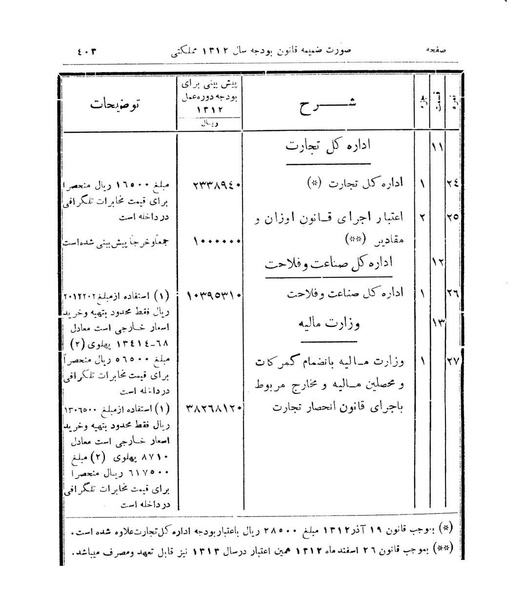 صفحه
صورت ضمیمه قانون بودجه سال ۱۳۱۲ مملکتی
۴۰۳
نمره
قسمت
جزء
شرح
پیش بینی برای
بودجه دوره عمل
۱۳۱۲
ریال
توضیحات
۱۱
اداره کل تجارت
۲۴
۱
اداره کل تجارت (*)
۲۳۳۸۹۴۰
مبلغ ۱۶۵۰۰ ریال منحصراً
برای قیمت مخابرات تلگرافی
در داخله است
۲۵
۲
اعتبار اجرای قانون اوزان و
مقادیر (**)
۱۰۰۰۰۰۰
جمعاً و خرجاً پیش بینی شده است
۱۲
اداره کل صناعت و فلاحت
۲۶
۱
اداره کل صناعت و فلاحت
۱۰۳۹۵۳۱۰
(۱) استفاده از مبلغ ۲۰۱۲۲۰۲
ریال فقط محدود بتهیه و خرید
اسعار خارجی است معادل
۱۳۴۱۴-۶۸ پهلوی (۲)
مبلغ ۵۶۵۰۰ ریال منحصراً
برای قیمت مخابرات تلگرافی
در داخله است
۱۳
وزارت مالیه
۲۷
۱
وزارت مالیه بانضمام گمرکات
و محصلین مالیه و مخارج مربوط
باجرای قانون انحصار تجارت
۳۸۲۶۸۱۲۰
(۱) استفاده از مبلغ ۱۳۰۶۵۰۰
ریال فقط محدود بتهیه و خرید
اسعار خارجی است معادل
۸۷۱۰ پهلوی (۲) مبلغ
۶۱۷۵۰۰ ریال منحصراً
برای قیمت مخابرات تلگرافی
در داخله است
(*) بموجب قانون ۱۹ آذر ۱۳۱۲ مبلغ ۲۸۵۰۰ ریال باعتبار بودجه اداره کل تجارت علاوه شده است.
(**) بموجب قانون ۲۶ اسفند ماه ۱۳۱۲ همین اعتبار در سال ۱۳۱۳ نیز قابل تعهد و مصرف میباشد.